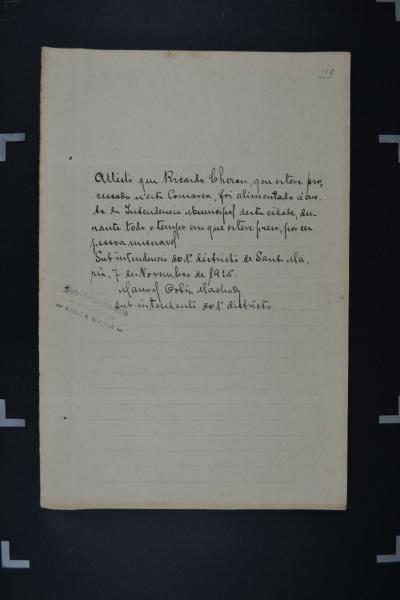 118
Attesto que Ricardo Cheran, que esteve pro-
cessado n'esta Comarca, foi alimentado á cus-
ta da Intendencia Municipal desta cidade, du-
rante todo o tempo em que esteve preso, por ser
pessoa miseravel.
Sub intendencia do 1º districto de Santa Ma-
ria, 7 de Novembro de 1915.
Manoel Machado
Sub intendente do 1º districto
Sub-Intendencia
SANTA MARIA